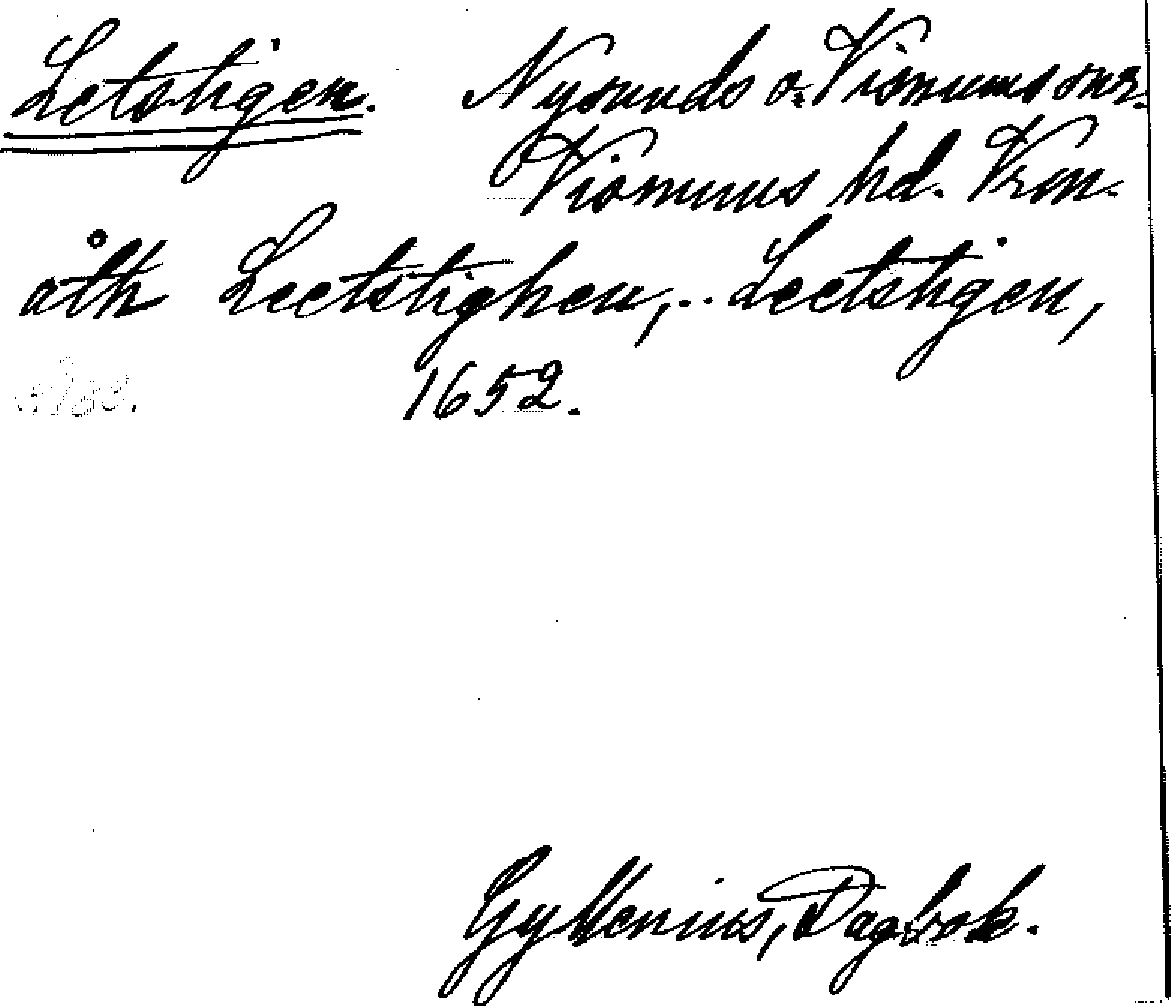 Letstigen. Nysunds o. Visnums snr.
Visnums hd. Vrm.
åth Leetstighen, .. Leetstigen,
1652.
Gyllenius, Dagbok.